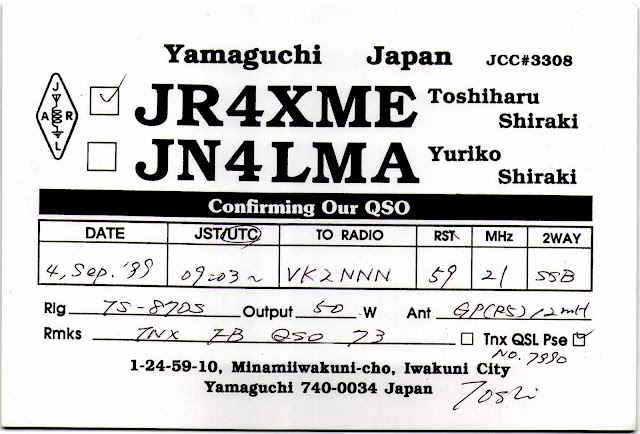 Yamaguchi Japan JCC#3308
J A R L
JR4XME Toshiharu Shiraki
JN4LMA Yuriko Shiraki
Confirming Our QSO
DATE JST/UTC TO RADIO RST MHz 2WAY
4, Sep. '99 09:03~ VK2NNN 59 21 SSB
Rig TS-870S Output 50 W Ant GP(R5) 12mH
Rmks TNX FB QSO 73 Tnx QSL Pse
NO. 7990
1-24-59-10, Minamiiwakuni-cho, Iwakuni City
Yamaguchi 740-0034 Japan
Toshi